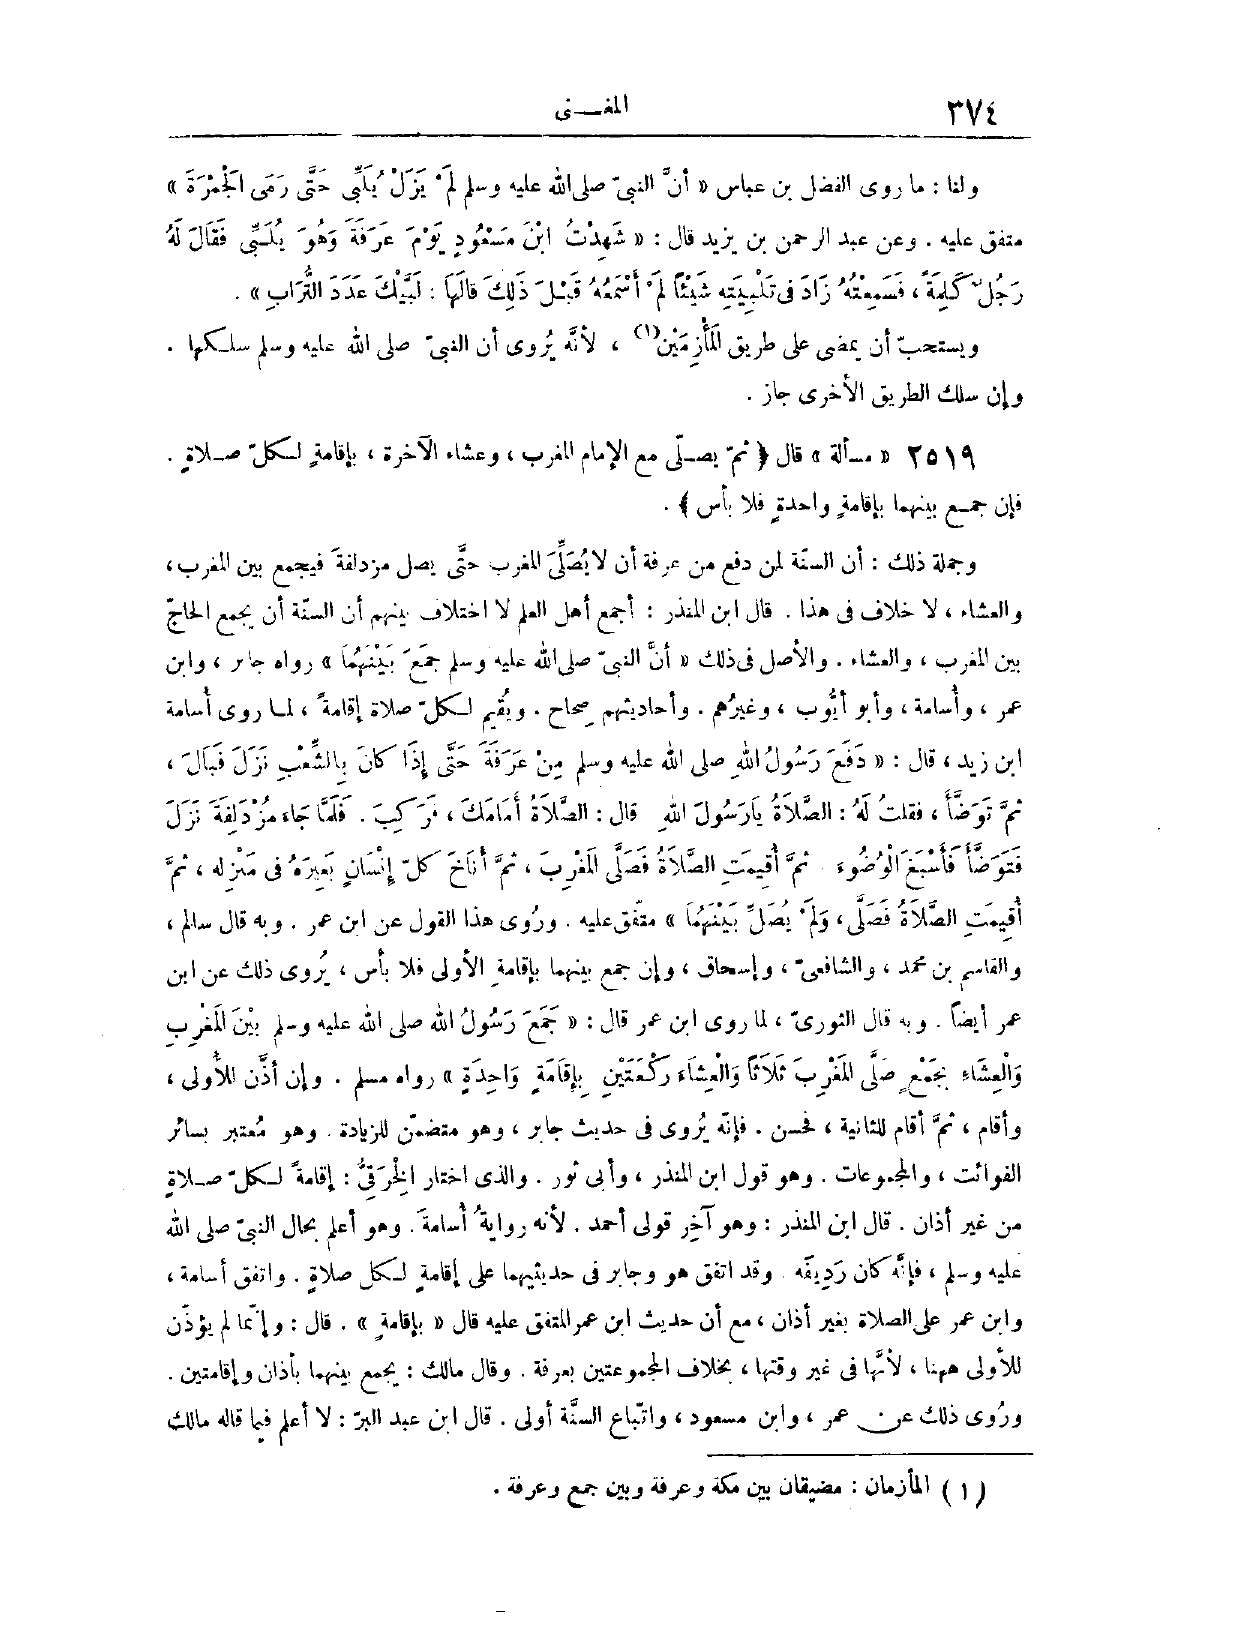 ٣٧٤
المغـــنى
ولنا : ما روى الفضل بن عباس « أنَّ النبىّ صلى الله عليه وسلم لَمْ يَزَلْ يُلَبِّى حَتَّى رَمَى الْجَمْرَةَ »
متفق عليه . وعن عبد الرحمن بن يزيد قال : « شَهِدْتُ ابْنَ مَسْعُودٍ يَوْمَ عَرَفَةَ وَهُوَ يُلَبِّى فَقَالَ لَهُ
رَجُلٌ كَلِمَةً ، فَسَمِعْتُهُ زَادَ فى تَلْبِيَتِهِ شَيْئاً لَمْ أَسْمَعْهُ قَبْلَ ذَلِكَ قَالَهَا : لَبَّيْكَ عَدَدَ التُّرَابِ » .
ويستحبّ أن يمضى على طريق الْمَأْزِمَيْن(١) ، لأنَّه يُروى أن النبىّ صلى الله عليه وسلم سلكها .
وإن سلك الطريق الأخرى جاز .
٢٥١٩ « مسألة » قال ﴿ ثمّ يصلّى مع الإمام المغرب ، وعشاء الآخرة ، بإقامةٍ لكلّ صلاةٍ .
فإن جمع بينهما بإقامةٍ واحدةٍ فلا بأس ﴾ .
وجملة ذلك : أن السنّة لمن دفع من عرفة أن لا يُصَلِّىَ المغرب حتَّى يصل مزدلفةَ فيجمع بين المغرب ،
والعشاء ، لا خلاف فى هذا . قال ابن المنذر : أجمع أهل العلم لا اختلاف بينهم أن السنّة أن يجمع الحاجّ
بين المغرب ، والعشاء . والأصل فى ذلك « أنَّ النبىّ صلى الله عليه وسلم جَمَعَ بَيْنَهُمَا » رواه جابر ، وابن
عمر ، وأُسامة ، وأبو أيُّوب ، وغيرُهم . وأحاديثهم صِحاح . ويُقيم لكلّ صلاة إقامةً ، لما روى أسامة
ابن زيد ، قال : « دَفَعَ رَسُولُ اللهِ صلى الله عليه وسلم مِنْ عَرَفَةَ حَتَّى إِذَا كَانَ بِالشِّعْبِ نَزَلَ فَبَالَ ،
ثمَّ تَوَضَّأَ ، فقلتُ لَهُ : الصَّلَاةُ يَارَسُولَ اللهِ قال : الصَّلَاةُ أَمَامَكَ ، فَرَكِبَ . فَلَمَّا جَاء مُزْدَلِفَةَ نَزَلَ
فَتَوَضَّأَ فَأَسْبَغَ الْوُضُوءَ ثمَّ أُقِيمَتِ الصَّلَاةُ فَصَلَّى الْمَغْرِبَ ، ثمَّ أَنَاخَ كلّ إِنْسَانٍ بَعِيرَهُ فى مَنْزِلِه ، ثمَّ
أُقِيمَتِ الصَّلَاةُ فَصَلَّى ، وَلَمْ يُصَلِّ بَيْنَهُمَا » متفّق عليه . ورُوى هذا القول عن ابن عمر . وبه قال سالم ،
والقاسم بن محمد ، والشافعىّ ، وإسحاق ، وإن جمع بينهما بإقامةِ الأولى فلا بأس ، يُروى ذلك عن ابن
عمر أيضاً . وبه قال الثورىّ ، لما روى ابن عمر قال : « جَمَعَ رَسُولُ الله صلى الله عليه وسلم بيْنَ الْمَغْرِبِ
وَالْعِشَاءِ بجَمْعٍ صَلَّى الْمَغْرِبَ ثَلَاثاً وَالْعِشَاءَ رَكْعَتَيْنِ بإِقَامَةٍ وَاحِدَةٍ » رواه مسلم . وإن أذَّن للأولى ،
وأقام ، ثمَّ أقام للثانية ، فحسن . فإنّه يُروى فى حديث جابر ، وهو متضمّن للزيادة . وهو مُعتبر بسائر
الفوائت ، والمجموعات . وهو قول ابن المنذر ، وأبى ثور . والذى اختار الْخِرَقِىُّ : إقامةً لكلّ صلاةٍ
من غير أذان . قال ابن المنذر : وهو آخِر قولى أحمد . لأنه روايةُ أُسامةَ . وهو أعلم بحال النبىّ صلى الله
عليه وسلم ، فإنَّه كان رَدِيفَه . وقد اتفق هو وجابر فى حديثيهما على إقامةٍ لكل صلاةٍ . واتفق أسامة ،
وابن عمر على الصلاة بغير أذان ، مع أن حديث ابن عمر المتفق عليه قال « بإقامةٍ » . قال : وإنّما لم يؤذّن
للأولى ههنا ، لأنَّها فى غير وقتها ، بخلاف المجموعتين بعرفة . وقال مالك : يجمع بينهما بأذان وإقامتين .
ورُوى ذلك عن عمر ، وابن مسعود ، واتّباع السنَّة أولى . قال ابن عبد البرّ : لا أعلم فيما قاله مالك
( ١ ) المأزمان : مضيقان بين مكة وعرفة وبين جمع وعرفة .